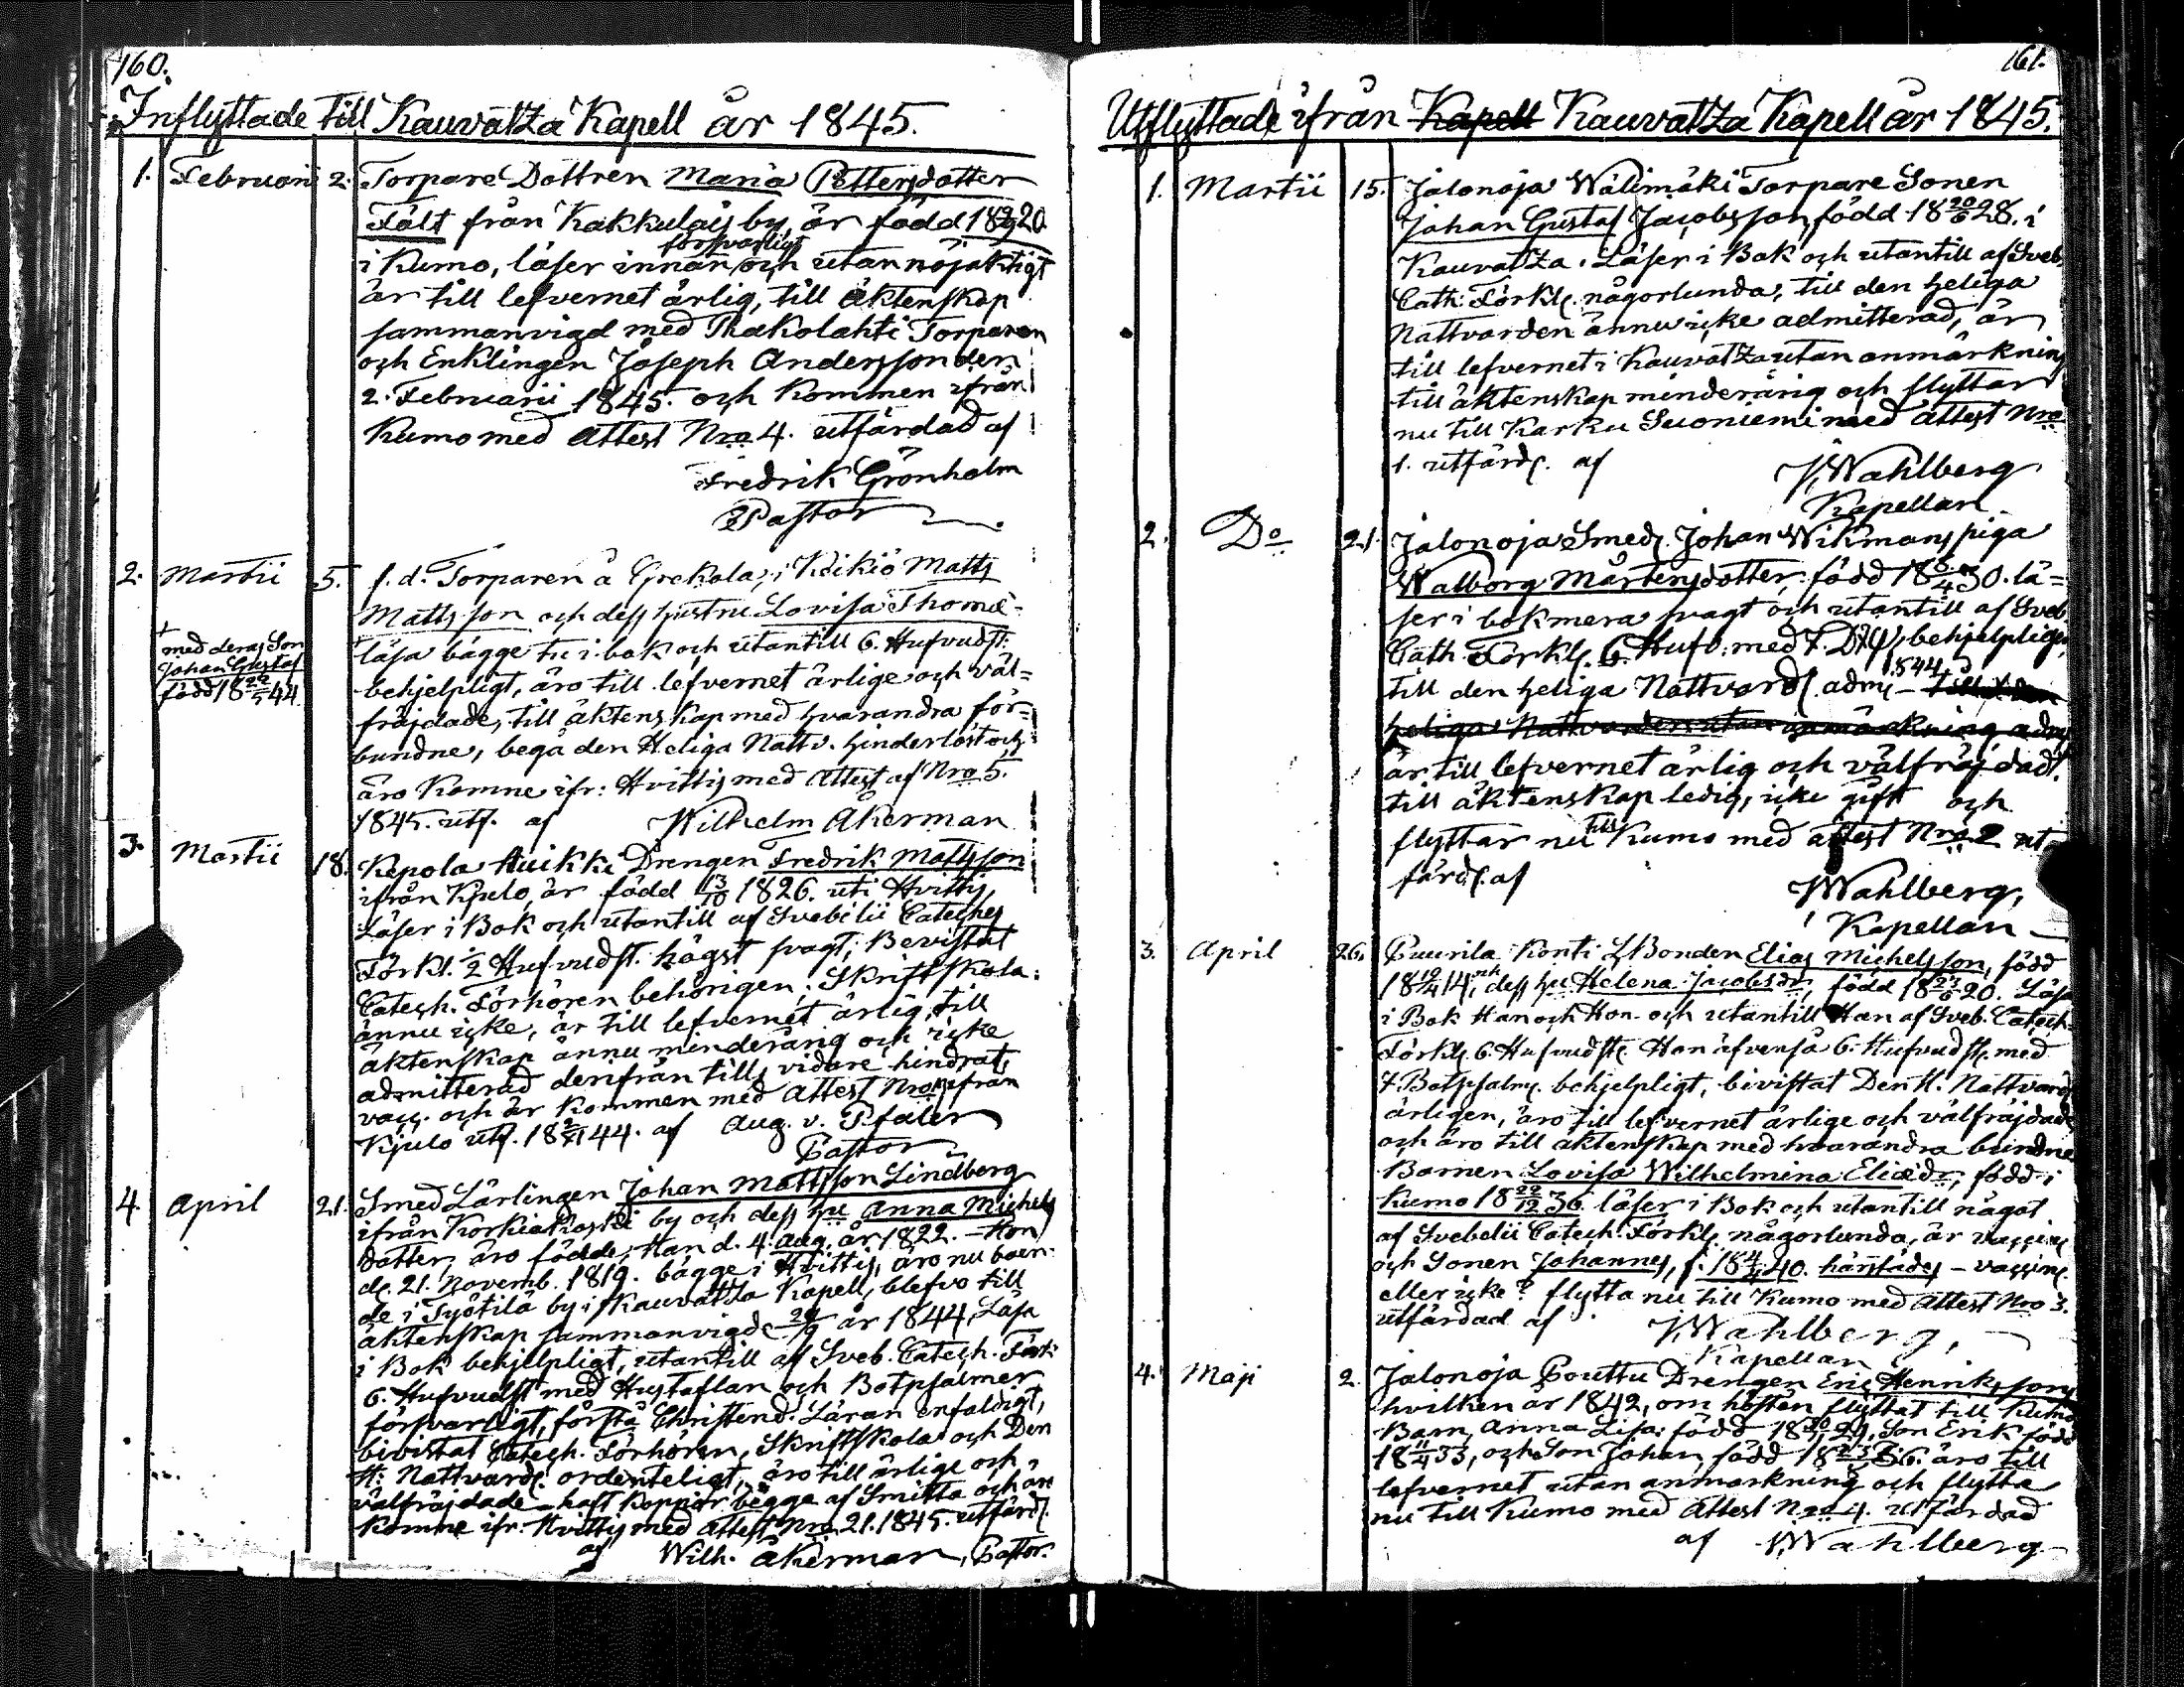 160.
Inflyttade till Kauvatza Kapell år 1845.
1. Februarii 2. Torpare Dottren Maria Pettersdotter
Fält från Kakkulais by, är född 18 2/9 20
försvarligt
i Kumo, läser innan och utan nöjaktigt
är till lefvernet ärlig, till äktenskap
sammanvigd med Thakolahti Torparen
och Enklingen Joseph Andersson den
2. Februarii 1845. och kommen ifrån
Kumo med Attest Nro 4. utfärdad af
Fredrik Grönholm
Pastor
2. Martii 5. f. d. Torparen å Grekola, i Keikiö Matts
Mattsson och dess hustru Lovisa Thomæ-
+ med deras Son
Johan Gustaf
född 18 22/5 44
läsa bägge tu i bok och utantill 6. Hufvudst:
behjelpligt, äro till lefvernet ärlige och väl=
fräjdade, till äktenskap med hvarandra för=
bundne, begå den Heliga Nattv. hinderlöst och
äro komne ifr: Hvittis med Attest af Nro 5.
1845. utf. af Wilhelm Åkerman
3. Martii 18. Kepola Huikki Drengen Fredrik Mattsson
ifrån Kjulo, är född 13/10 1826. uti Hvittis,
Läser i Bok och utantill af Svebelii Cateches
Förkl. 1/2 Hufvudst. högst svagt, Bevistat
Catech. Förhören behörigen; Skriftskola:
ännu icke, är till lefvernet ärlig, till
äktenskap ännu minderårig och icke
admitterad derifrån till vidare hindrat,
vacc. och är kommen med Attest Nro från
Kjulo utf. 18 2/11 44. af Aug. v. Pfaler
Pastor
4. April 21. Smed Lärlingen Johan Mattsson Lindberg
ifrån Korkiakoski by och dess hu Anna Michels
dotter, äro födde: Han d. 4. Aug. år 1822. - Hon
de. 21. Novemb. 1819. bägge i Hvittis, äro nu boen-
de i Työtilä by i Kauvatza Kapell, blefvo till
äktenskap sammanvigde 29/9 år 1844, Läsa
i Bok behjelpligt, utantill af Sveb. Catech. Förk:
6. Hufvudst med Hustaflan och Botpsalmer
försvarligt, förstå Christend. Läran enfaldigt,
bivistat Catech. Förhören, Skriftskola och Den
H: Nattvard. ordenteligt, äro till ärlige och
välfräjdade haft koppor bägge af Smitta och äro
komne ifr. Hvittis med Attest Nro 21. 1845. utfärd.
af Wilh. Åkerman, Pastor.
161.
Utflyttade ifrån Kapell Kauvatza Kapell år 1845.
1. Martii 15. Jalonoja Wälimäki Torpare Sonen
Johan Gustaf Jacobsson, född 18 20/6 28. i
Kauvatza. Läser i Bok och utantill af Sveb.
Cath. Förkl. någorlunda, till den heliga
Nattvarden ännu icke admitterad, är
till lefvernet i Kauvatza utan anmärkning
till äktenskap minderårig och flyttar
nu till Karku Suoniemi med Attest Nro
1. utfärd. af J. Wahlberg
Kapellan
2. Do 21. Jalonoja Smed. Johan Wikmans piga
Walborg Mårtensdotter född 18 8/4 30. lä=
ser i bok mera svagt och utantill af Sveb.
Cath. Förkl. 6. Hufv. med 7. behjelpligt,
1844,
till den heliga Nattvard. adm.
heliga Nattvarden utan anmärkning adm
är till lefvernet ärlig och välfräjdad.
till äktenskap ledig, icke gift och
till
flyttar nu Kumo med attest Nro 2 ut
färd. af J. Wahlberg,
Kapellan
3. April 26. Puurila Konti Bonden Elias Michelsson, född
18 19/4 14, och dess hu Helena Jacobsdr, född 18 23/6 20. Läsa
i Bok Han och Hon och utantill Han af Sveb. Catech.
Förkl. 6. Hufvudst. Hon äfvenså 6. Hufvudst. med
7. Botpsalm. behjelpligt, bivistat Den H. Nattvard
årligen, äro till lefvernet ärlige och välfräjdade
och äro till äktenskap med hvarandra bundne
Barnen Lovisa Wilhelmina Eliædr, född i
Kumo 18 22/12 36. läser i Bok och utantill något
af Svebelii Catech. Förkl. någorlunda, är vaccin.
och Sonen Johannes, f. 18 4/4 40. härstädes - vaccin.
eller icke? flytta nu till Kumo med Attest Nro 3.
utfärdad af J. Wahlberg,
Kapellan
4. Maji 2. Jalonoja Pouttu Drengen Eric Henriksson
hvilken år 1842, om hösten flyttat till Kumo
Barn Anna Lisa: född 18 29, Son Erik född
18 11/4 33, och Son Johan född 18 36. äro till
lefvernet utan anmärkning och flytta
nu till Kumo med Attest Nro 4. utfärdad
af J. Wahlberg